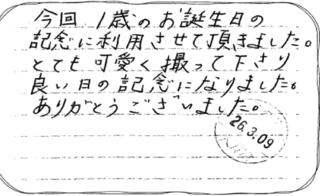 今回 1歳のお誕生日の
記念に利用させて頂きました。
とても可愛く撮って下さり
良い日の記念になりました。
ありがとうございました。
26.3.09